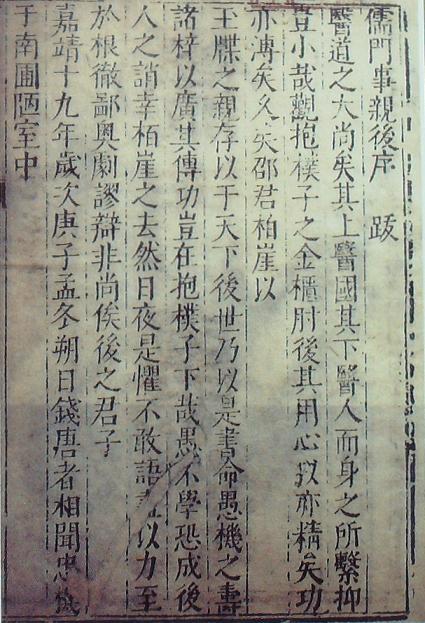 儒門事親後序 跋
醫道之大尚矣其上醫國其下醫人而身之所繫抑
豈小哉觀抱樸子之金櫃肘後其用心寂亦精矣功
亦溥矣久矣邵君柏崖以
王牒之親存以干天下後世乃以是書命愚機之壽
諸梓以廣其傳功豈在抱樸子下哉愚不學恐成後
人之誚幸柏崖之去然日夜是懼不敢語盡以力至
於根徹鄙奧劇謬辯非尚俟後之君子
嘉靖十九年歲次庚子孟冬朔日錢唐者相聞忠
于南圃陋室中